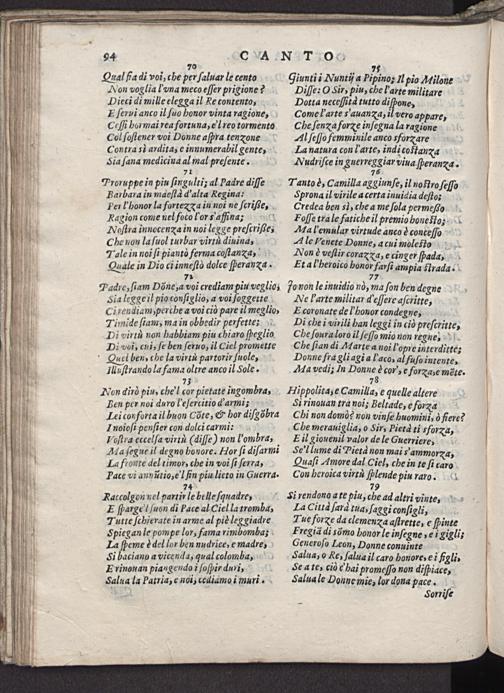 94 CANTO
70
Qual fia di voi, che per saluar le cento
Non voglia l'vna meco esser prigione?
Dieci di mille elegga il Re contento,
E serui anco il suo honor vinta ragione,
Cessi hormai rea fortuna, e'l reo tormento
Col sostener voi Donne aspra tenzone
Contra sì ardita, e innumerabil gente,
Sia sana medicina al mal presente.
71
Proruppe in piu singulti; al Padre disse
Barbara in maestà d'alta Regina:
Per l'honor la fortezza in noi ne scrisse,
Ragion come nel foco l'or s'affina;
Nostra innocenza in noi legge prescrisse,
Che non la suol turbar virtù diuina,
Tale in noi si piantò ferma costanza,
Quale in Dio ci innestò dolce speranza.
72
Padre, siam Dōne, a voi crediam piu veglio,
Sia legge il pio consiglio, a voi soggette
Ci rendiam, perche a voi ciò pare il meglio,
Timide siam, ma in obbedir perfette;
Di virtù non habbiam piu chiaro speglio
Di voi, cui, se ben seruo, il Ciel promette
Quel ben, che la virtù partorir suole,
Illustrando la fama oltre anco il Sole.
73
Non dirò piu, che'l cor pietate ingombra,
Ben per noi duro l'esercitio d'armi;
Lei conforta il buon Cōte, & hor disgōbra
I noiosi pensier con dolci carmi:
Vostra eccelsa virtù (disse) non l'ombra,
Ma segue il degno honore. Hor si disarmi
La fronte del timor, che in voi si serra,
Pace vi annūtio, e'l fin piu lieto in Guerra.
74
Raccolgon nel partir le belle squadre,
E sparge'l suon di Pace al Ciel la tromba,
Tutte schierate in arme al piè leggiadre
Spiegan le pompe lor, fama rimbomba;
La speme è del lor ben nudrice, e madre,
Si baciano a vicenda, qual colomba,
E rinouan piangendo i sospir duri,
Salua la Patria, e noi, cediamo i muri.
75
Giunti i Nuntij a Pipino; Il pio Milone
Disse: O Sir, piu, che l'arte militare
Dotta necessità tutto dispone,
Come l'arte s'auanza, il vero appare,
Che senza forze insegna la ragione
Al sesso feminnile anco sforzare
La natura con l'arte, indi costanza
Nudrisce in guerreggiar viua speranza.
76
Tanto è, Camilla aggiunse, il nostro sesso
Sprona il virile a certa inuidia desto;
Credea ben sì, che a me sola permesso
Fosse tra le fatiche il premio honesto;
Ma l'emular virtude anco è concesso
A le Venete Donne, a cui molesto
Non è vestir corazza, e cinger spada,
Et a l'heroico honor farsi ampia strada.
77
Io non le inuidio nò, ma son ben degne
Ne l'arte militar d'essere ascritte,
E coronate de l'honor condegne,
Di che i virili han leggi in ciò prescritte,
Che soura loro il sesso mio non regne,
Che sian di Marte a noi l'opre interditte;
Donne fra gli agi a l'aco, al fuso intente,
Ma vedi; In Donne è cor', e forza, e mēte.
78
Hippolita, e Camilla, e quelle altere
Si rinouan tra noi; Beltade, e forza
Chi non domò? non vinse huomini, ò fiere?
Che merauiglia, o Sir, Pietà ti sforza,
E il giouenil valor de le Guerriere,
Se'l lume di Pietà non mai s'ammorza,
Quasi Amore dal Ciel, che in te sì caro
Con heroica virtù splende piu raro.
79
Si rendono a te piu, che ad altri vinte,
La Città sarà tua, saggi consigli,
Tue forze da clemenza astrette, e spinte
Fregiā di sōmo honor le insegne, e i gigli;
Generoso Leon, Donne conuinte
Salua, o Re, salua il caro honore, e i figli,
Se a te, ciò c'hai promesso non dispiace,
Salua le Donne mie, lor dona pace.
Sorrise